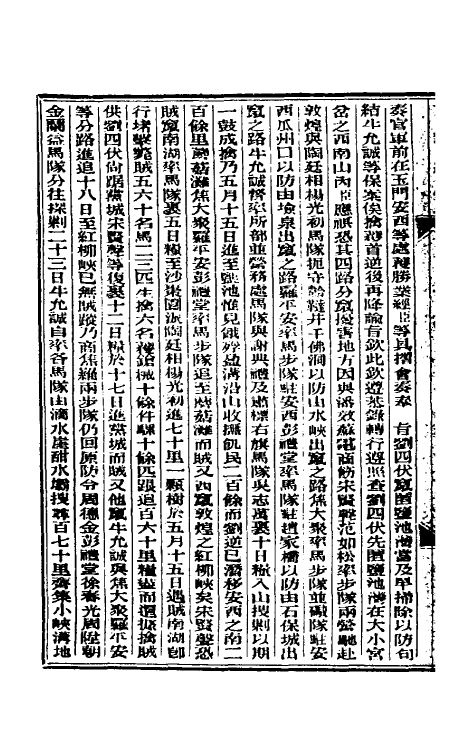 奏官軍前在玉門安西等處疊勝業經臣等具摺會奏奉　旨劉四伏竄匿鹽池灣當及早掃除以防勾
結牛允誠等保案俟擒獲首逆後再降諭旨欽此欽遵恭錄轉行遵照查劉四伏先匿鹽池灣在大小宮
岔之西南山內臣應祺恐其四路分竄擾害地方因與潘效蘇電商飭朱賢輯范如松率步隊兩營馳赴
敦煌與陶廷相楊光初馬隊扼守井千佛洞以防由水峽出竄之路焦大聚率馬步隊並礮隊駐安
西瓜州口以防由塊泉出竄之路羅平安率馬步隊駐安西彭禮堂率馬隊駐道家橋以防由石保城出
竄之路牛允誠督率所部並營務處馬隊與謝興禮及肅標右旗馬隊吳志萬裹十日糧入山搜剿以期
一鼓成擒乃五月十五日進至鹽池惟見餓殍盈溝沿山收撫飢民二百餘而劉逆已潛移安西之南二
百餘里蘑菇灘焦大聚羅平安彭禮堂率馬步隊追至蘑菇灘而賊又西竄敦煌之紅柳峽矣朱賢聲恐
賊竄南湖率馬隊裹五日糧至沙棗園派陶廷相楊光初進七十里一顆樹於五月十五日遇賊南湖卽
行堵擊斃賊五六十名馬二三匹生擒六名獲鎗械十餘件騾十餘匹跟追百六十里糧盡而還擒賊
供劉四伏尚踞黨城朱賢聲等復裹十二日糧於十七日進黨城而賊又他竄牛允誠與焦大聚羅平安
等分路進追十八日至紅柳峽已無賊蹤乃商焦羅兩步隊仍回原防令周德金彭禮堂徐春光周陞朝
金蘭益馬隊分往探剿二十三日牛允誠自率各馬隊由滴水崖甜水壩搜尋百七十里齊集小峽溝地